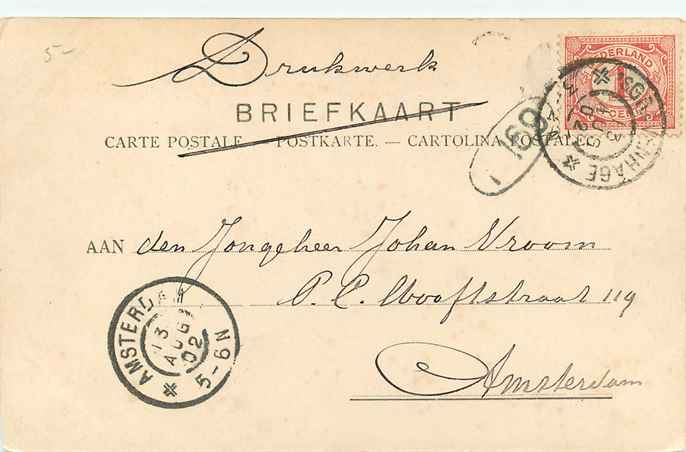 5-
Drukwerk
BRIEFKAART
CARTE POSTALE. — POSTKARTE. — CARTOLINA POSTALE.
NEDERLAND
1
169
1
'SGRAVENHAGE
13 AUG 02
AAN den Jongeheer Johan Vroom
P. C. Hooftstraat 119
Amsterdam
AMSTERDAM
13
AUG
02
5-6N